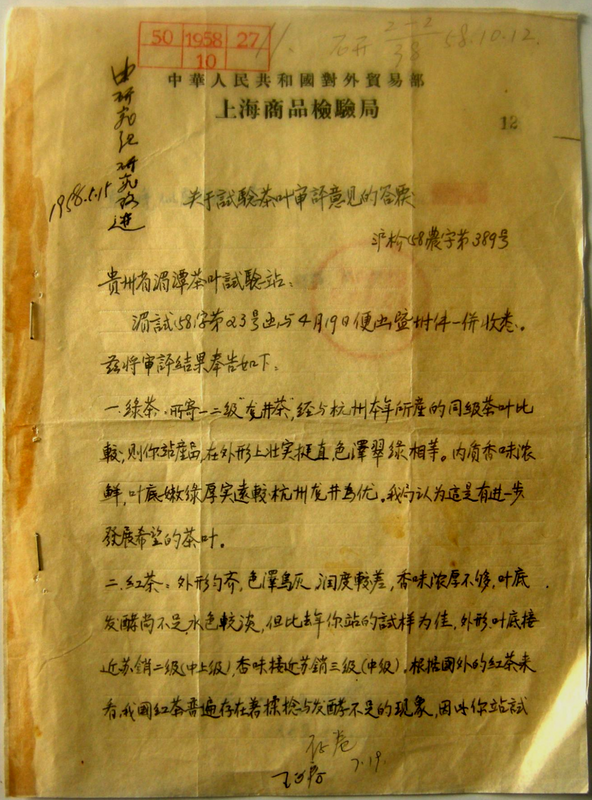 50 1958 27
10
58.10.12.
中華人民共和國對外貿易部
上海商品檢驗局
12
由研究組研究改進
1958.5.15
关于試驗茶叶审評意見的答覆
沪檢(58)農字第389号
貴州省湄潭茶叶試驗站:
湄試(58)字第023号函与4月19日便函暨附件一併收悉。
茲将审評結果奉告如下:
一.綠茶.所寄一二級"龙井茶",經与杭州本年所產的同級茶叶比
較,則你站產品,在外形上壮实挺直,色澤翠綠相等。內质香味浓
鮮,叶底嫩綠厚实遠較杭州龙井為优。我局认为這是有进一步
發展希望的茶叶。
二.紅茶:外形匀齐,色澤烏灰,润度較差,香味浓厚不够,叶底
发酵尚不足,水色較淡,但比去年你站的試样为佳,外形叶底接
近苏銷二級(中上級),香味接近苏銷三級(中級).根据國外的紅茶来
看,我國紅茶普遍存在着揉捻与发酵不足的現象,因此你站試
7.19.